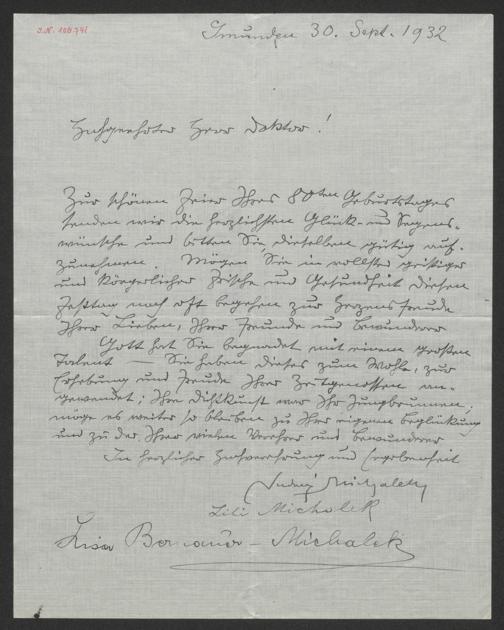 J.N. 188.741
Gmunden 30. Sept. 1932
Hochgeehrter Herr Doktor!
Zur schönen Feier Ihres 80ten Geburtstages
senden wir die herzlichsten Glück- und Segens-
wünsche und bitten Sie, dieselben gütig auf-
zunehmen. Mögen Sie in vollster geistiger
und körperlicher Frische und Gesundheit diesen
Festtag noch oft begehen zur Herzensfreude
Ihrer Lieben, Ihrer Freunde und Bewunderer
Gott hat Sie begnadet mit einem großen
Talent — Sie haben dieses zum Wohle, zur
Erhebung und Freude Ihrer Zeitgenossen an-
gewendet; Ihre Dichtkunst war Ihr Jungbrunnen,
möge es weiter so bleiben zu Ihrer eigenen Beglückung
und zu der Ihrer vielen Verehrer und Bewunderer
In herzlicher Hochverehrung und Ergebenheit
Ludwig Michalek
Lili Michalek
Lisa Michalek